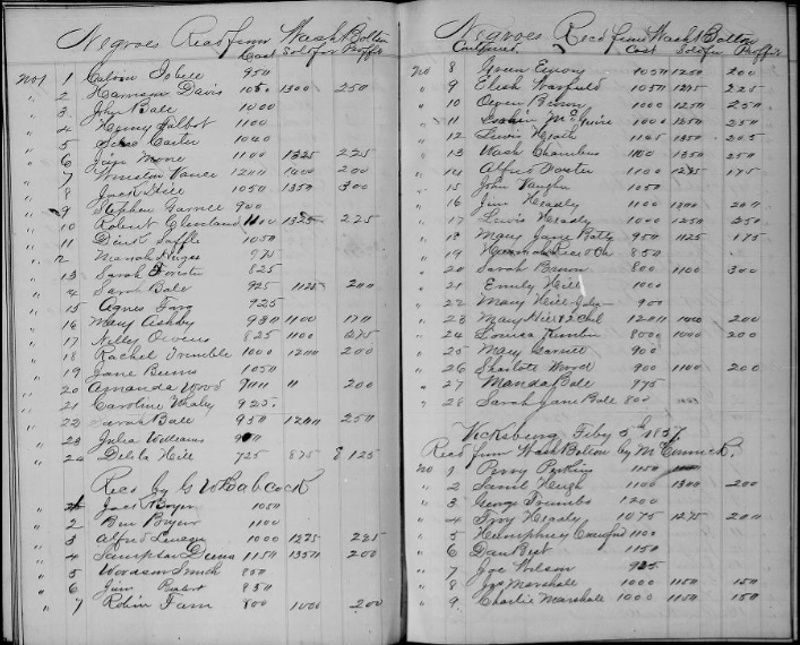 Negroes Recd from Wash Bolton
Cost Sold for Proffit
No 1 Calvin Isbell 950
" 2 Harrison Davis 1050 1300 250
" 3 John Bale 1000
" 4 Henry Talbot 1100
" 5 Carter 1040
" 6 Jim Mone 1100 1325 225
" 7 Winston Vance 1200 1400 200
" 8 Jack Hill 1050 1350 300
" 9 Stephen Garnee 900
" 10 Robert Cleveland 1100 1325 225
" 11 Dink Saffle 1050
" 12 Mariah 975
" 13 Sarah Forister 825
" 4 Sam Bale 925 1125 200
" 15 Agnes Troy 725
" 16 Mary Ashby 930 1100 170
" 17 Nelly Owens 825 1100 275
" 18 Rachel Trimble 1000 1200 200
" 19 Jane Burns 1050
" 20 Amanda Wood " 200
" 21 Caroline Whaley 925
" 22 Sarah Bale 950 1200 250
" 23 Julia Williams 900
" 24 Delila Hill 725 875 $125
Recd by G W Babcock
1 Jack Boyer 1050
" 2 Ben Bryer 1100
" 3 Alfred 1000 1225 225
" 4 Sampson Dems 1150 1350 200
" 5 Woodson 850
" 6 Jim 850
" 7 Robin Farn 800 1000 200
Negroes Recd from Wash Bolton
Continued Cost Sold for Proffit
No 8 Green Emory 1050 1250 200
" 9 Elish Warfield 1050 1275 225
" 10 Owen Brown 1000 1250 250
" 11 McGuire 1000 1250 250
" 12 Lewis Heath 1145 1350 205
" 13 Wash Chambers 1100 1350 250
" 14 Alfred Foster 1100 1275 175
" 15 John Vaughn 1050
" 16 Jim Heady 1100 1300 200
" 17 Lewis Heady 1000 1250 250
" 18 Mary Jane Batty 950 1125 175
" 19 Hannah Rice & Ch 850
" 20 Sarah Brown 800 1100 300
" 21 Emily Hill 1000
" 22 Mary Hill 900
" 23 Mary Hill & 2 Chl 1200 1400 200
" 24 Louisa 8000 1000 200
" 25 Mary Garnett 900
" 26 Sharlote Wood 900 1100 200
" 27 Manda Bale 775
" 28 Sarah Jane Bale 800
Vicksburg Feby 5th 1857
Recd from Wash Bolton by McCormick.
No 1 Perry Perkins 1150
" 2 Saml Heugh 1100 1300 200
" 3 George Trumbo 1200
" 4 Troy Heady 1075 1275 200
" 5 Humphrey Crawford 1100
" 6 Dan Best 1150
" 7 Joe Wilson 925
" 8 Jos Marshall 1000 1150 150
" 9 Charlie Marshall 1000 1150 150